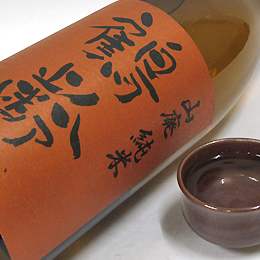 鶴齢
山廃 純米